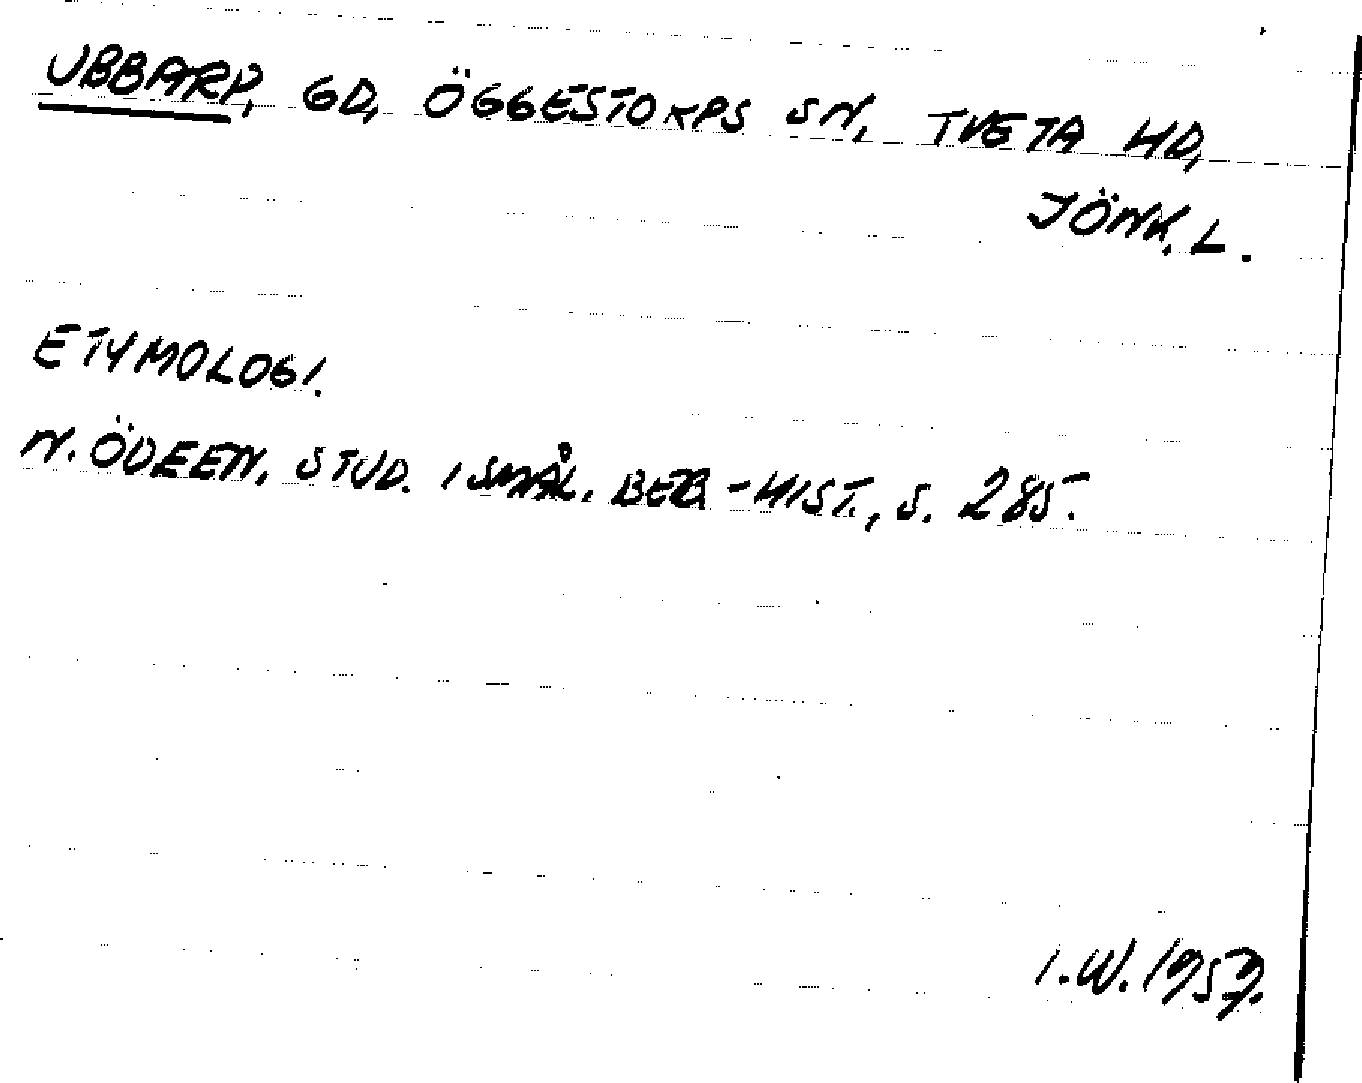 UBBARP, GD, ÖGGESTORPS SN, TVETA HD,
JÖNK. L.
ETYMOLOGI.
N. ÖDEEN, STUD. I SMÅL. BEB.-HIST., S. 285.
I.W. 1957.